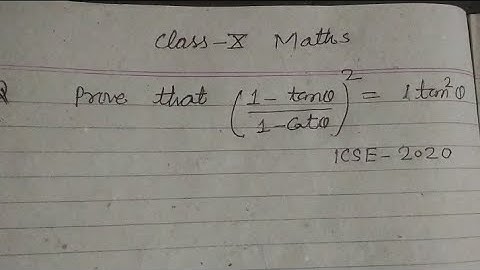 Class-X Maths
Q Prove that (1 - tanθ / 1 - Cotθ)² = 1 tan²θ
ICSE - 2020